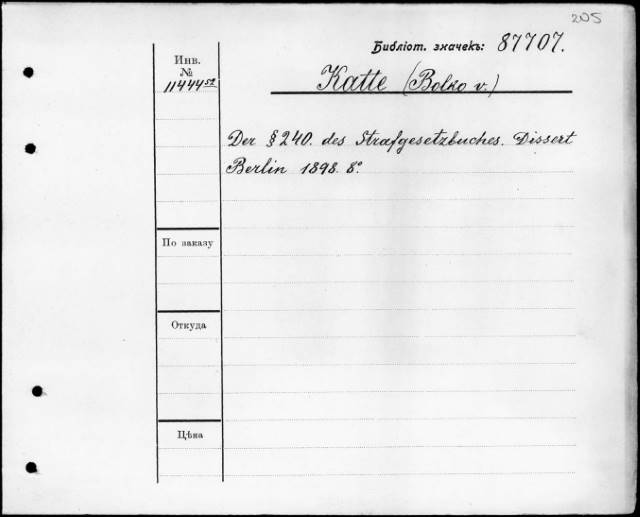 205
Библіот. значекъ: 87707.
Инв.
№
11444⁵²
Katte (Bolko v.)
Der § 240. des Strafgesetzbuches. Dissert
Berlin 1898. 8°.
По заказу
Откуда
Цѣна